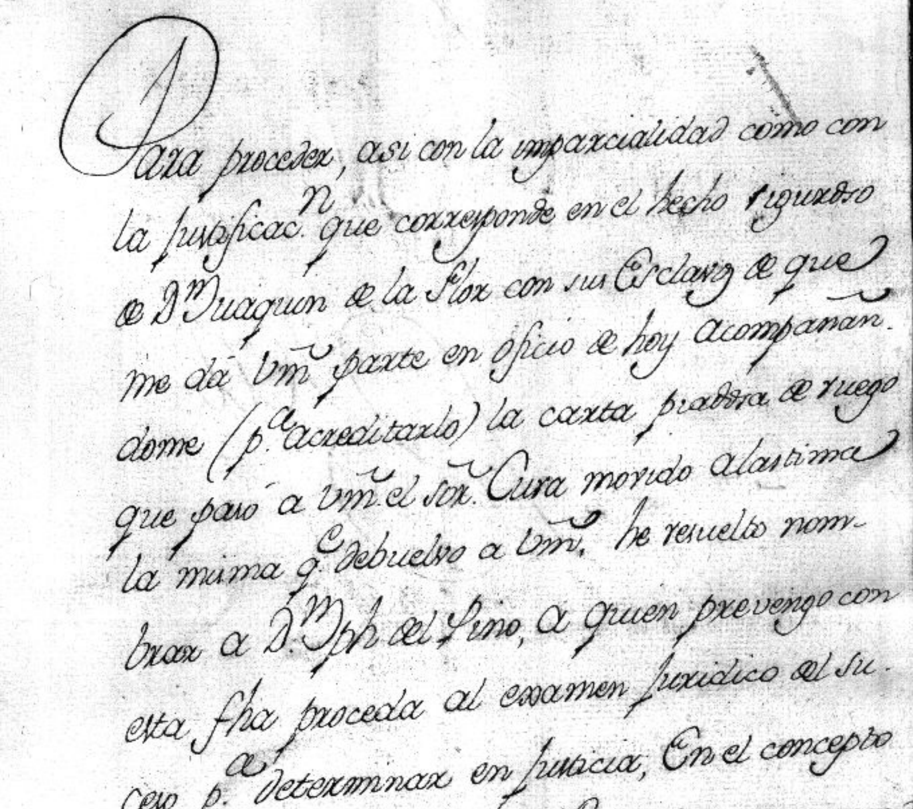 Para proceder, asi con la imparcialidad como con
la justificac.n que corresponde en el hecho riguroso
de D.n Juaquin de la Flor con sus Esclavos de que
me dá Vm parte en oficio de hoy acompañan-
dome (p.a acreditarlo) la carta piadosa de ruego
que pasó a Vm el Sor. Cura movido a lastima
la misma q.e debuelvo a Vm, he resuelto nom-
brar a D.n Jph del Pino, á quien prevengo con
esta fha proceda al examen juridico del su-
ceso p.a determinar en justicia, En el concepto